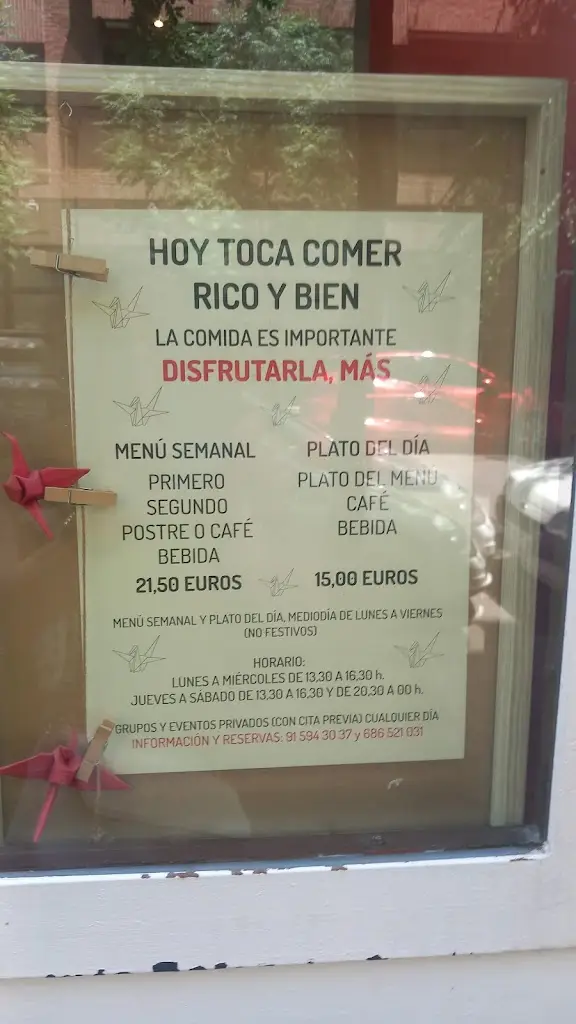 HOY TOCA COMER
RICO Y BIEN
LA COMIDA ES IMPORTANTE
DISFRUTARLA, MÁS
MENÚ SEMANAL
PRIMERO
SEGUNDO
POSTRE O CAFÉ
BEBIDA
21,50 EUROS
PLATO DEL DÍA
PLATO DEL MENÚ
CAFÉ
BEBIDA
15,00 EUROS
MENÚ SEMANAL Y PLATO DEL DÍA, MEDIODÍA DE LUNES A VIERNES
(NO FESTIVOS)
HORARIO:
LUNES A MIÉRCOLES DE 13,30 A 16,30 h.
JUEVES A SÁBADO DE 13,30 A 16,30 Y DE 20,30 A 00 h.
GRUPOS Y EVENTOS PRIVADOS (CON CITA PREVIA) CUALQUIER DÍA
INFORMACIÓN Y RESERVAS: 91 594 30 37 y 686 521 031